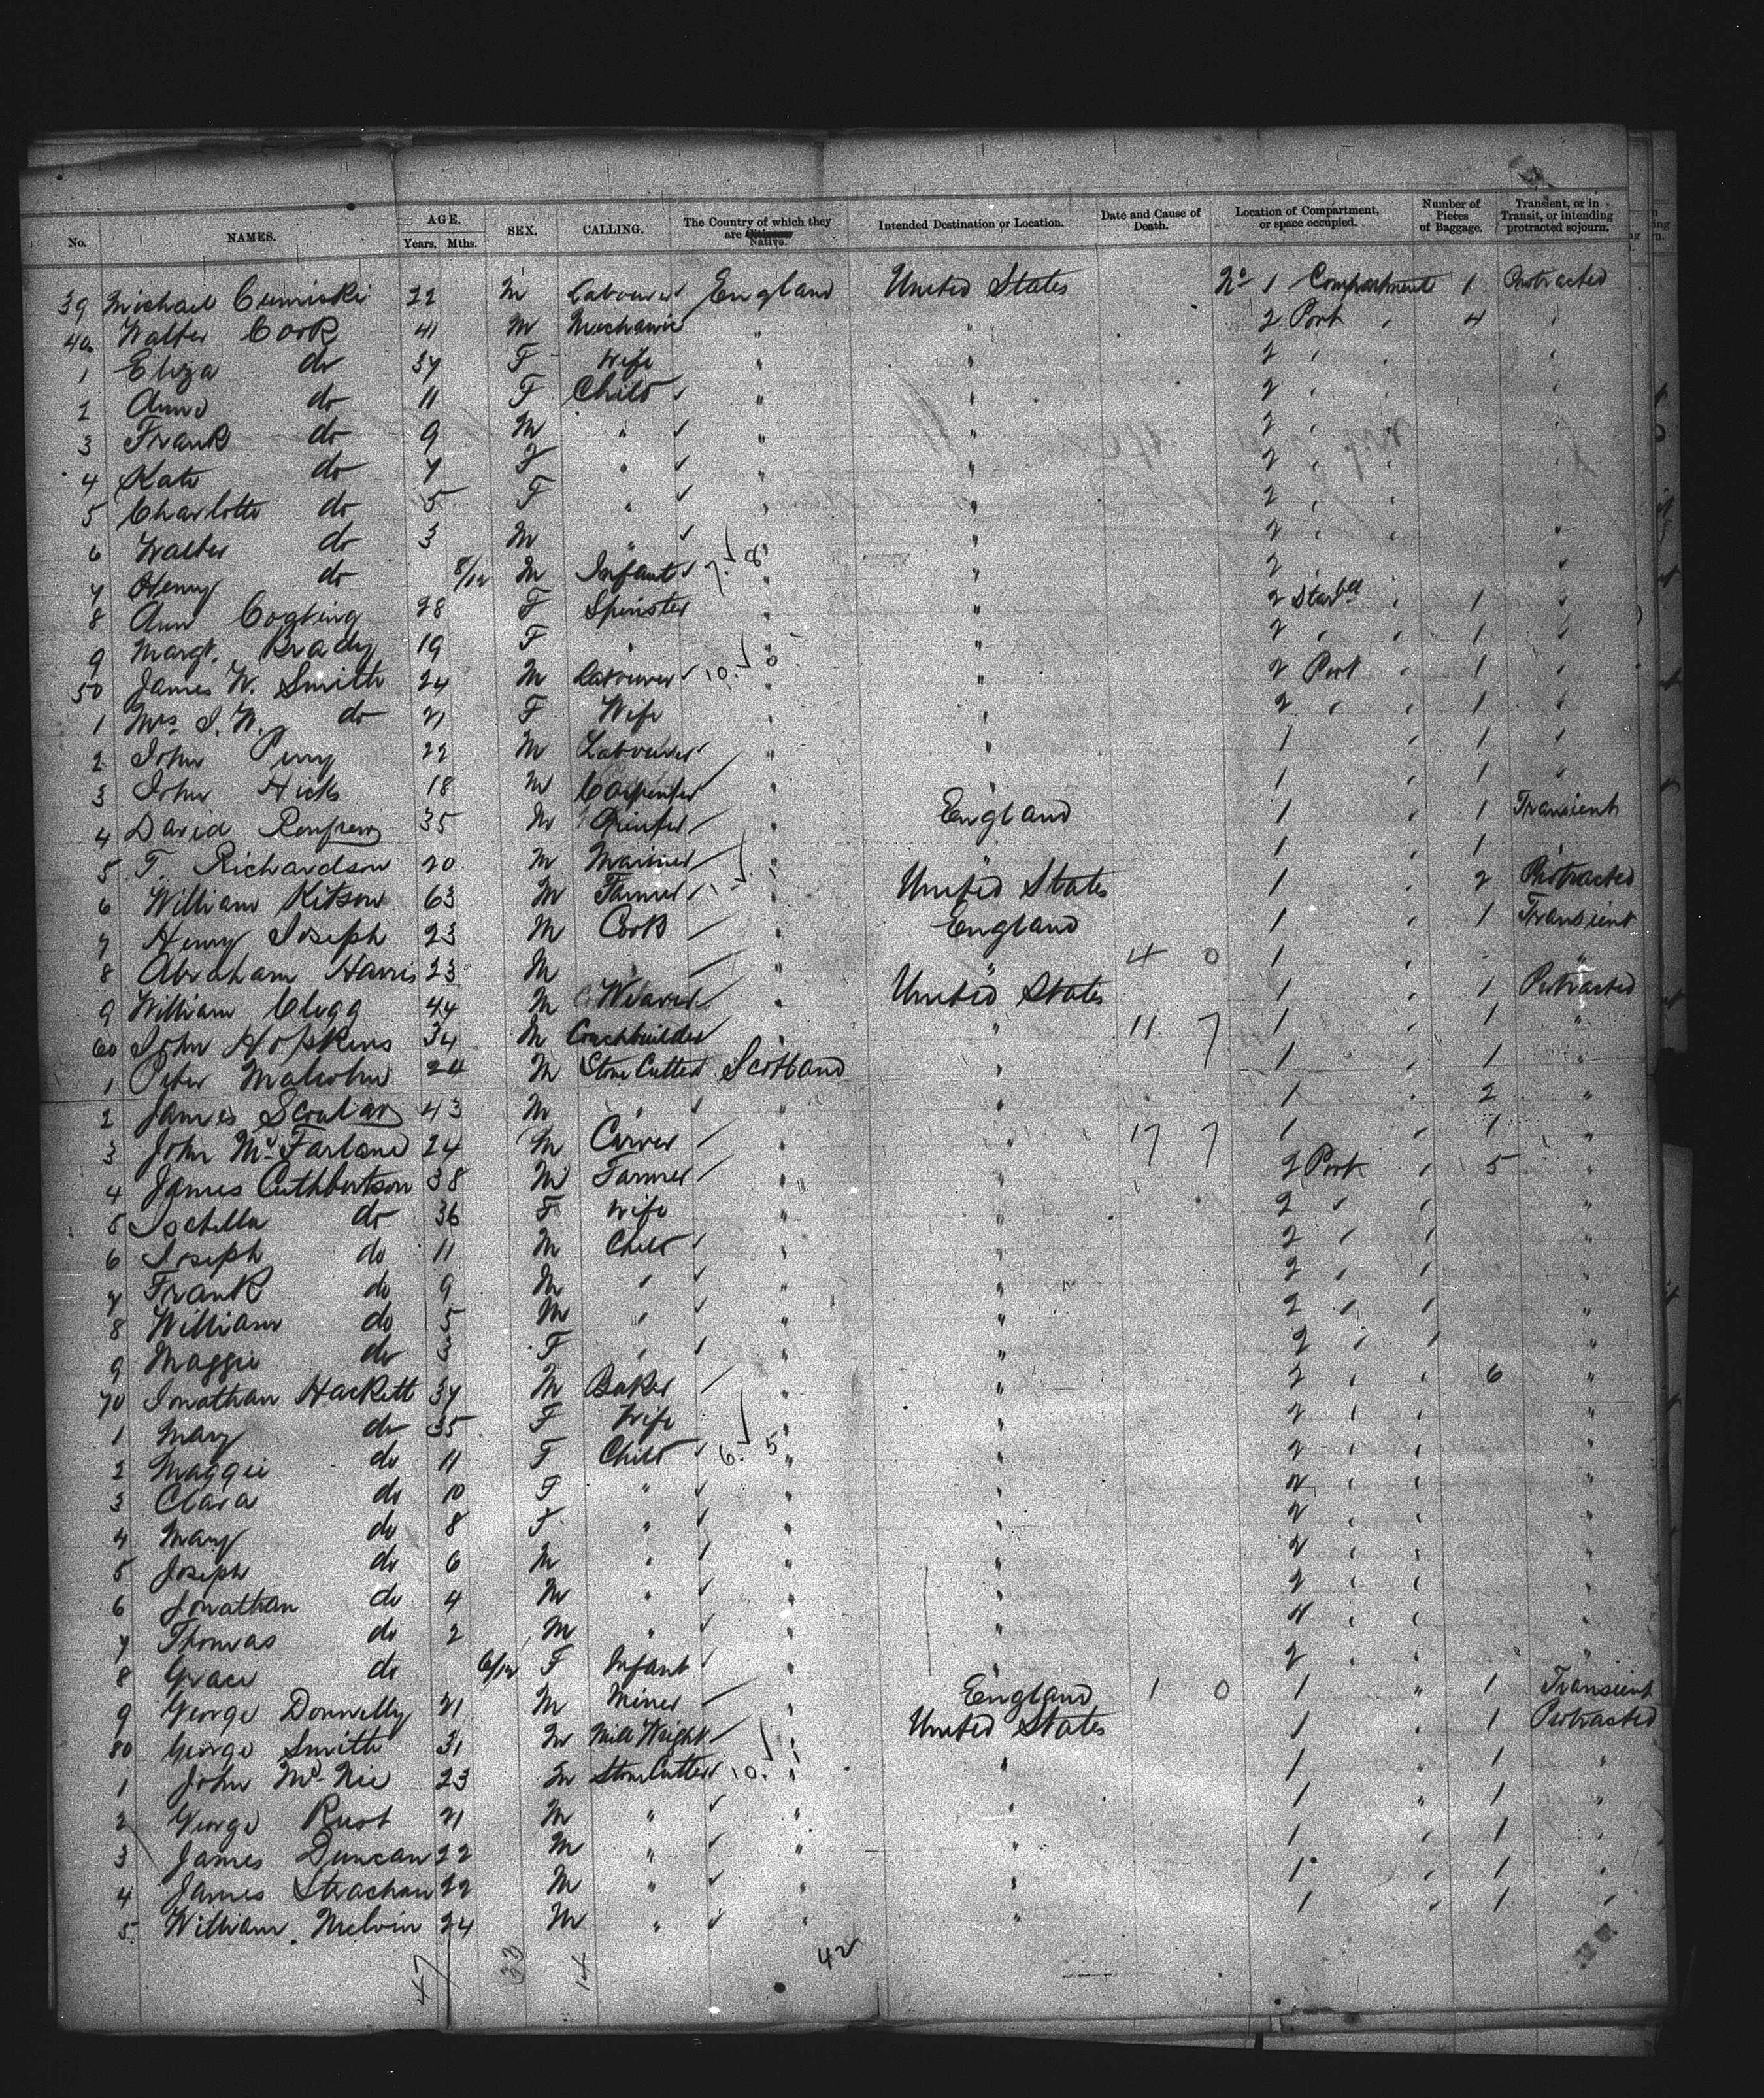 No. NAMES. AGE. Years, Mths. SEX. CALLING. The Country of which they are Native. Intended Destination or Location. Date and Cause of Death. Location of Compartment, or space occupied. Number of Pieces of Baggage. Transient, or in Transit, or intending protracted sojourn.
39 Michael Cumiski 22 M Labourer England United States No 1 Compartment 1 Protracted
40 Walter Cook 41 M Mechanic " " 2 Port " 4 "
1 Eliza do 37 F Wife " " 2 " " "
2 Anne do 11 F Child " " 2 " " "
3 Frank do 9 M " " " 2 " " "
4 Kate do 7 F " " " 2 " " "
5 Charlotte do 5 F " " " 2 " " "
6 Walter do 3 M " " " 2 " " "
7 Henry do 8/12 M Infant 7 8 " " 2 " "
8 Ann 28 F Spinster " " 2 Starbd " 1 "
9 Margt. Brady 19 F " " " 2 " " 1 "
50 James W. Smith 24 M Labourer 10 0 " " 2 Port " 1 "
1 Mrs J. W. do 21 F Wife " " 2 " " 1 "
2 John Perry 22 M Labourer " " 1 " 1 "
3 John Hicks 18 M Carpenter " " 1 " 1 "
4 David Renfrew 35 M Printer " England 1 " 1 Transient
5 T. Richardson 20 M Mariner " " 1 " 1 "
6 William Kitson 63 M Farmer " United States 1 " 2 Protracted
7 Henry Joseph 23 M Cook " England 1 " 1 Transient
8 Abraham Harris 23 M " " " 4 0 1 " - "
9 William Clegg 44 M Weaver " United States 1 " 1 Protracted
60 John Hopkins 34 M Coachbuilder " " 11 7 1 " 1 "
1 Peter Malcolm 24 M Stone Cutter Scotland " 1 " 1 "
2 James Scoular 43 M " " " 1 " 2 "
3 John McFarlane 24 M Carver " " 17 7 1 " 1 "
4 James Cuthbertson 38 M Farmer " " 2 Port " 5 "
5 Isabella do 36 F Wife " " 2 " " "
6 Joseph do 11 M Child " " 2 " " "
7 Frank do 9 M " " " 2 " " "
8 William do 5 M " " " 2 " " "
9 Maggie do 3 F " " " 2 " " "
70 Jonathan Hackett 37 M Baker " " 2 " " 6 "
1 Mary do 35 F Wife " " 2 " " "
2 Maggie do 11 F Child 6 5 " " 2 " " "
3 Clara do 10 F " " " 2 " " "
4 Mary do 8 F " " " 2 " " "
5 Joseph do 6 M " " " 2 " " "
6 Jonathan do 4 M " " " 2 " " "
7 Thomas do 2 M " " " 2 " " "
8 Grace do 6/12 F Infant " " 2 " " "
9 George Donnelly 21 M Miner " England 1 0 1 " 1 Transient
80 George Smith 31 M Mill Wright " United States 1 " 1 Protracted
1 John McNie 23 M Stone Cutter 10 " " 1 " 1 "
2 George Rust 21 M " " " 1 " 1 "
3 James Duncan 22 M " " " 1 " 1 "
4 James Strachan 22 M " " " 1 " 1 "
5 William Melvin 24 M " " " 1 " 1 "
47 33 14 42